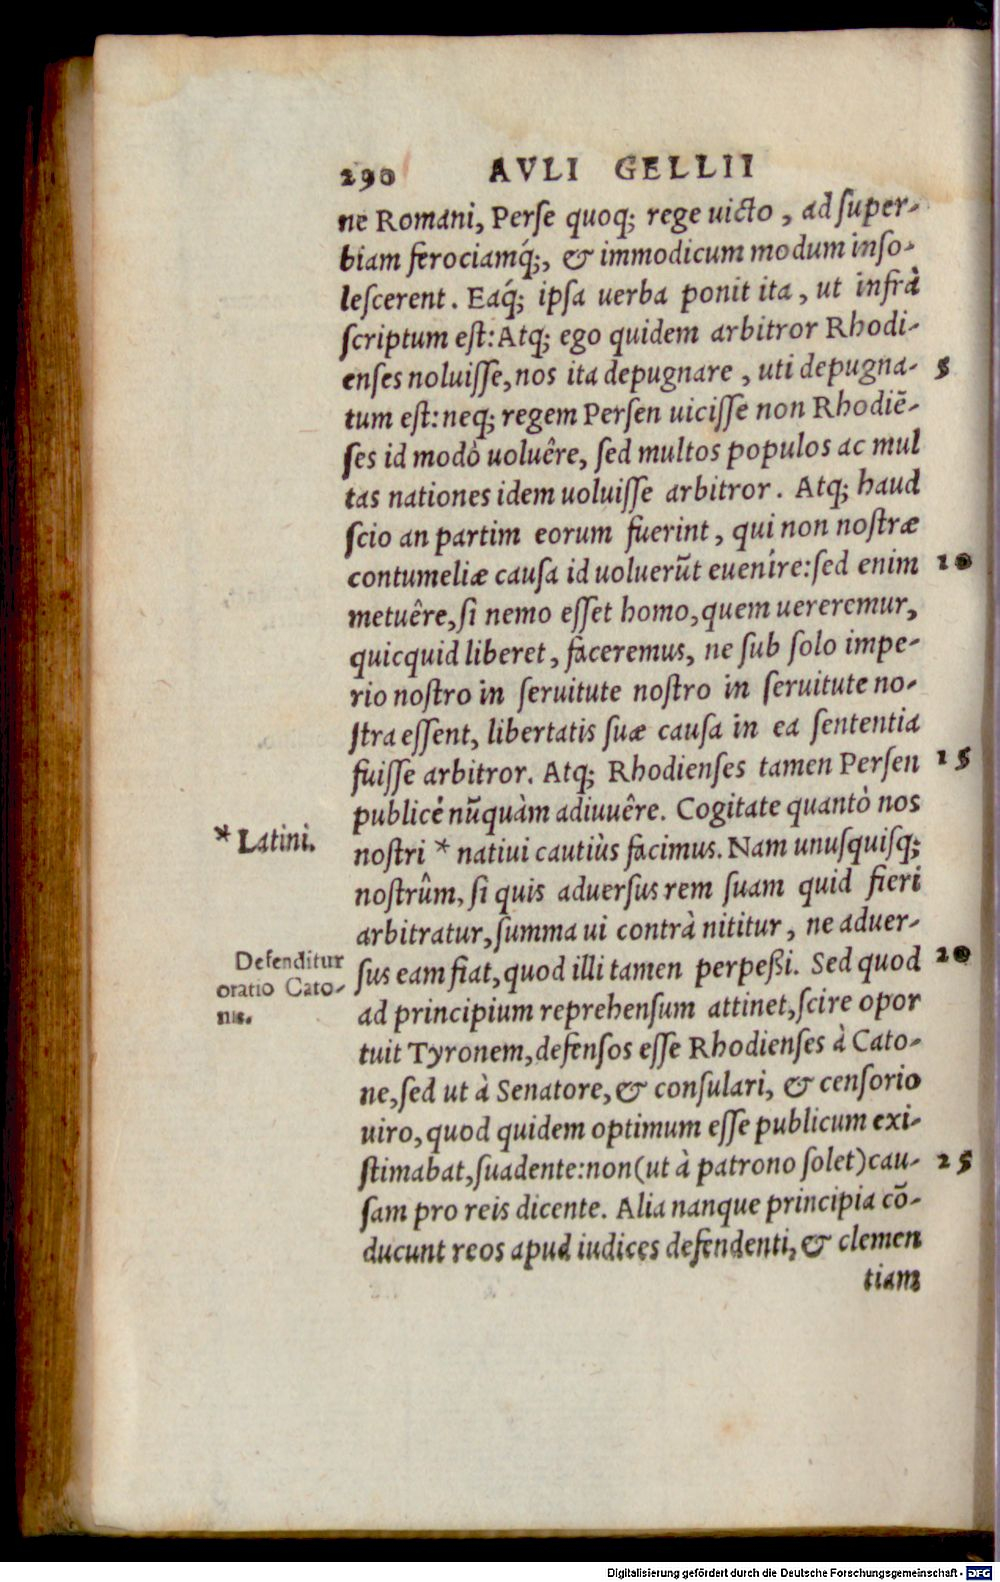 290 AVLI GELLII
ne Romani, Perse quoq; rege uicto, ad super-
biam ferociamq́;, & immodicum modum inso-
lescerent. Eaq́; ipsa uerba ponit ita, ut infrà
scriptum est: Atq; ego quidem arbitror Rhodi-
enses noluisse, nos ita depugnare, uti depugna- 5
tum est: neq; regem Persen uicisse non Rhodiē-
ses id modò uoluêre, sed multos populos ac mul
tas nationes idem uoluisse arbitror. Atq; haud
scio an partim eorum fuerint, qui non nostræ
contumeliæ causa id uoluerūt euenire: sed enim 10
metuêre, si nemo esset homo, quem uereremur,
quicquid liberet, faceremus, ne sub solo impe-
rio nostro in seruitute nostro in seruitute no-
stra essent, libertatis suæ causa in ea sententia
fuisse arbitror. Atq; Rhodienses tamen Persen 15
publicè nūquàm adiuuêre. Cogitate quantò nos
* Latini.
nostri * natiui cautiùs facimus. Nam unusquisq;
nostrûm, si quis aduersus rem suam quid fieri
arbitratur, summa ui contrà nititur, ne aduer-
Defenditur
oratio Cato-
nis.
sus eam fiat, quod illi tamen perpeßi. Sed quod 20
ad principium reprehensum attinet, scire opor
tuit Tyronem, defensos esse Rhodienses à Cato-
ne, sed ut à Senatore, & consulari, & censorio
uiro, quod quidem optimum esse publicum exi-
stimabat, suadente: non (ut à patrono solet) cau- 25
sam pro reis dicente. Alia nanque principia cō-
ducunt reos apud iudices defendenti, & clemen
tiam
Digitalisierung gefördert durch die Deutsche Forschungsgemeinschaft - DFG